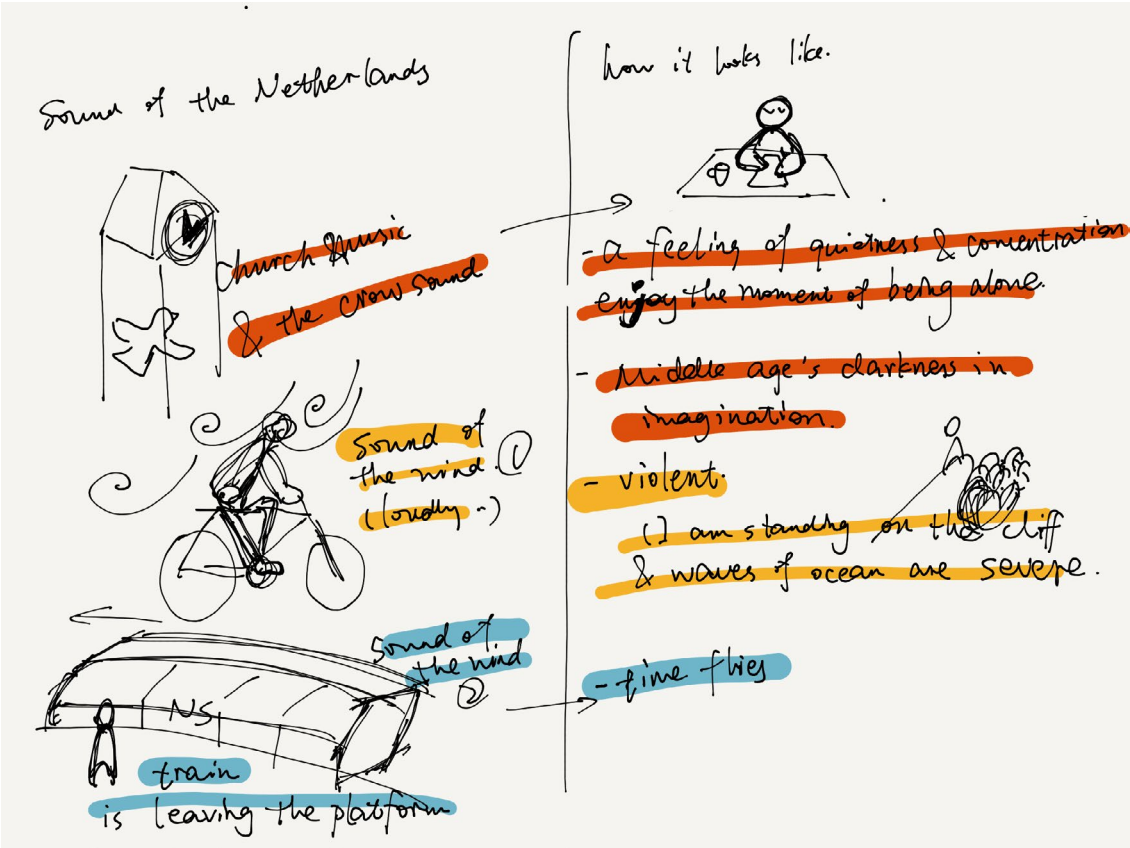 Sound of the Netherlands
church & music
& the crow sound
sound of
the wind. ①
(loudly..)
sound of
the wind
②
NS
train
is leaving the platform
how it looks like.
- a feeling of quietness & concentration
enjoy the moment of being alone.
- Middle age's darkness in
imagination.
- violent.
(I am standing on the cliff
& waves of ocean are severe.
- time flies